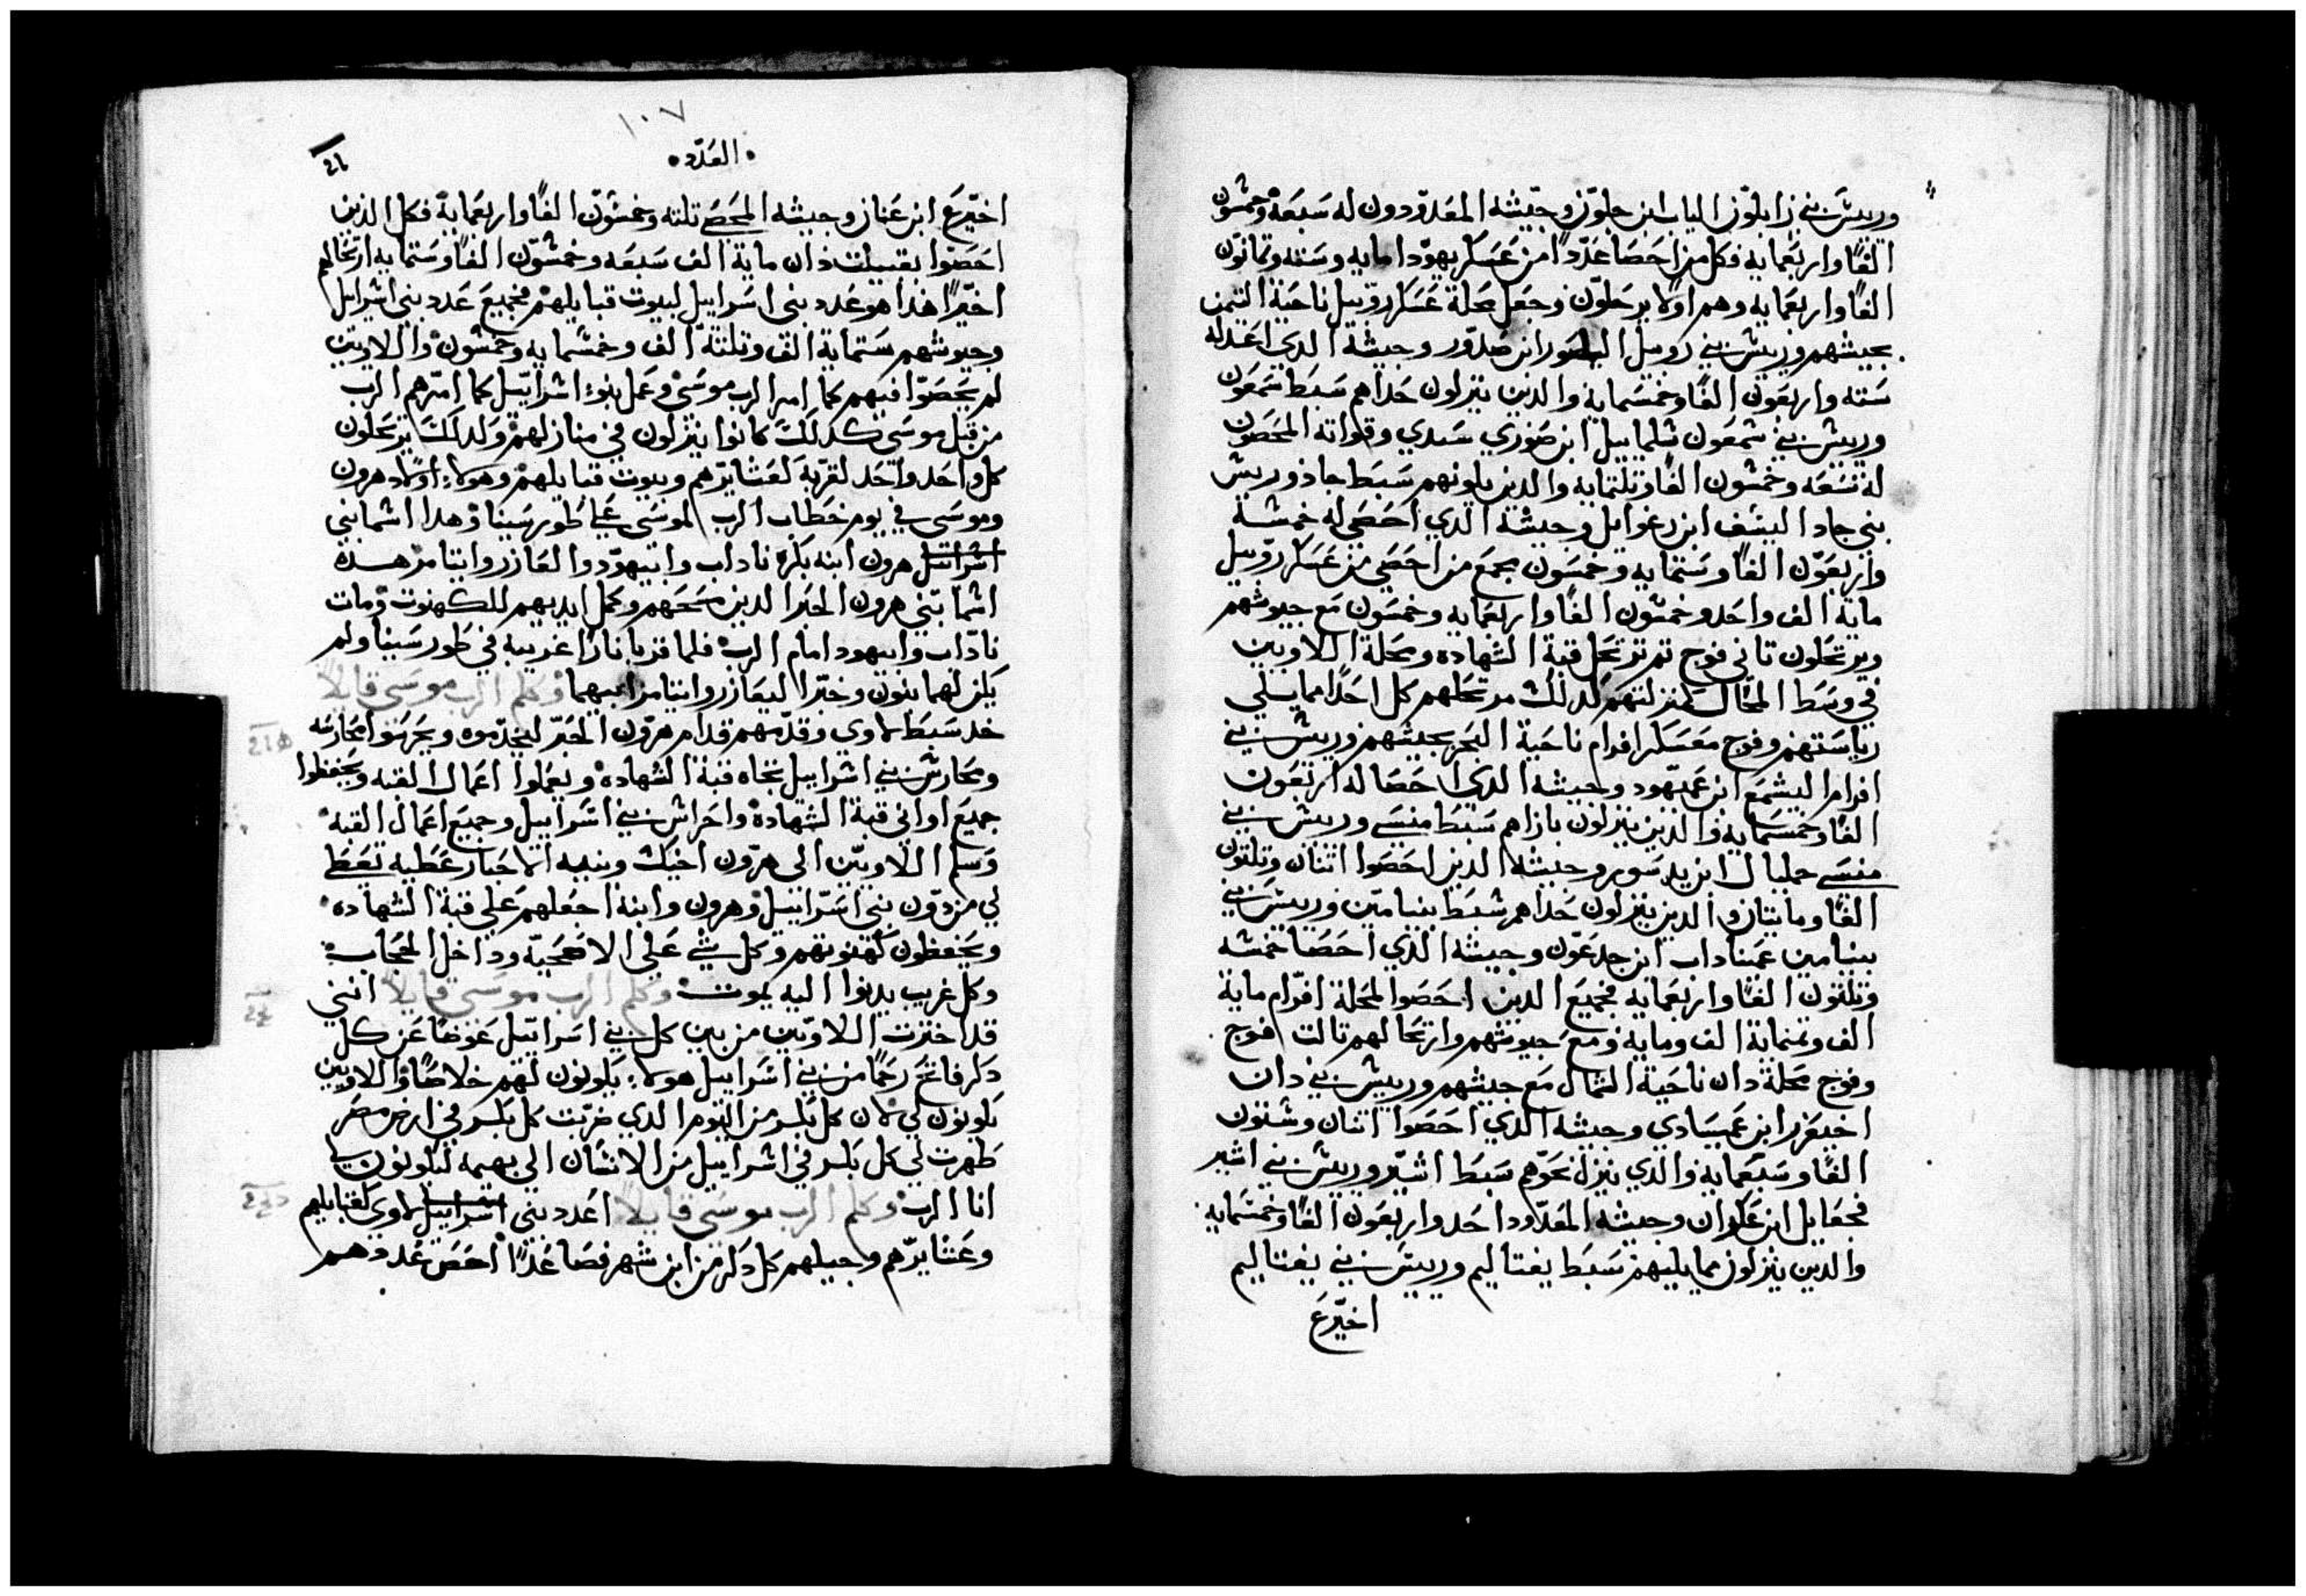 وريش بني زابلون الياب ابن حلون وجيشه المعدودون له سبعه وخمسون
الفًا واربعمايه فكل من احصا عددًا من عسكر يهودا مايه وسته وتمانون
الفًا واربعمايه وهم اولا يرحلون وجعل محلة عسكر روبيل ناحية التيمن
بجيشهم وريش بني روبيل اليصور ابن صدور وجيشه الدي اعد له
سته واربعون الفًا وخمسمايه والدين ينزلون حداهم سبط شمعون
وريش بني شمعون شلماييل ابن صوري سدي وقواته المحصون
له تسعه وخمسون الفًا وتلتمايه والدين يلونهم سبط جاد وريش
بني جاد اليشف ابن رغوايل وجيشه الدي احصي له خمسة
واربعون الفًا وستمايه وخمسون مجمع من احصي من عسكر روبيل
ماية الف واحد وخمسون الفًا واربعمايه وخمسون مع جيوشهم
ويرتحلون تاني فوج تم ترتحل قبة الشهاده ومحلة اللاويين
في وسط المحال كمنزلتهم كدلك مرتحلهم كل احدًا مما يلي
رياستهم وفوج معسكر افرام ناحية البحر بجيشهم وريش بني
افرام اليشمع ابن عميهود وجيشه الدي احصا له اربعون
الفًا وخمسمايه والدين ينزلون بازاهم سبط منسى وريش بني
منسى جمليال ابن يدسور وجيشه الدين احصوا اتنان وتلتون
الفًا ومايتان والدين ينزلون حداهم سبط بنيامين وريش بني
بنيامين عميناداب ابن جدعون وجيشه الدي احصا خمسه
وتلتون الفًا واربعمايه فجميع الدين احصوا لمحلة افرام ماية
الف وتمنماية الف ومايه ومع جيوشهم وارتحالهم تالت فوج
وفوج محلة دان ناحية الشمال مع جيشهم وريش بني دان
اخيعزر ابن عميسادي وجيشه الدي احصوا اتنان وستون
الفًا وسبعمايه والدي ينزل نحوهم سبط اشير وريش بني اشير
فجعايل ابن عكران وجيشه المعدود احد واربعون الفًا وخمسمايه
والدين ينزلون مما يليهم سبط يفتاليم وريش بني يفتاليم
اخيرع
١٠٧
العدد
اخيرع ابن عناز وجيشه المحصي تلته وخمسون الفًا واربعماية فكل الدين
احصوا بقبيلت دان ماية الف سبعه وخمسون الفًا وستمايه ارتحالهم
اخيرًا هدا هو عدد بني اسراييل لبيوت قبايلهم فجميع عدد بني اسراييل
وجيوشهم ستماية الف وتلتة الف وخمسمايه وخمسون واللاويين
لم يحصوا فيهم كما امر الرب موسى وعمل بنو اسراييل كما امرهم الرب
من قبل موسى كدلك كانوا ينزلون في منازلهم ولدلك يرتحلون
كل واحد واحد لقربة لعشايرهم وبيوت قبايلهم وهولا اولاد هرون
وموسى في يوم خطاب الرب لموسى على طور سينا وهدا اسما بني
اسراييل هرون ابنه بكره ناداب وابيهود والعازر وايتامر هده
اسما بني هرون الحبر الدين مسحهم وكمل ايديهم للكهنوت ومات
ناداب وابيهود امام الرب فلما قربا نارًا غريبه في طور سينا ولم
يكن لهما بنون وخبرا ليعازر وايتامر ابيهما وكلم الرب موسى قايلاً
خد سبط لاوي وقدمهم قدام هرون الحبر ليخدموه ويحرسوا محارسه
ومحارس بني اسراييل تجاه قبة الشهاده ويعملوا اعمال القبه ويحفظوا
جميع اواني قبة الشهاده واحراس بني اسراييل وجميع اعمال القبه
وسلم اللاويين الى هرون اخيك وبنيه الاحبار عطيه تعطا
لي من دون بني اسراييل وهرون وابنه اجعلهم على قبة الشهاده
ويحفظون كهنوتهم وكل شي على الاضحيه وداخل الحجاب
وكل غريب يدنوا اليه يموت وكلم الرب موسى قايلاً انني
قد اخترت اللاويين من بين كل بني اسراييل عوضًا عن كل
دكر فاتح رحمًا من بني اسراييل هولا يكونون لهم خلاصًا واللاويين
يكونون لي لان كل بكر من اليوم الدي ضربت كل بكر في ارض مصر
طهرت لي كل بكر في اسراييل من الانسان الى بهيمه ليكونون لي
انا الرب وكلم الرب موسى قايلاً اعدد بني اسراييل لاوي لقبايلهم
وعشايرهم وجيلهم كل دكر من ابن شهر فصاعدًا احص عددهم